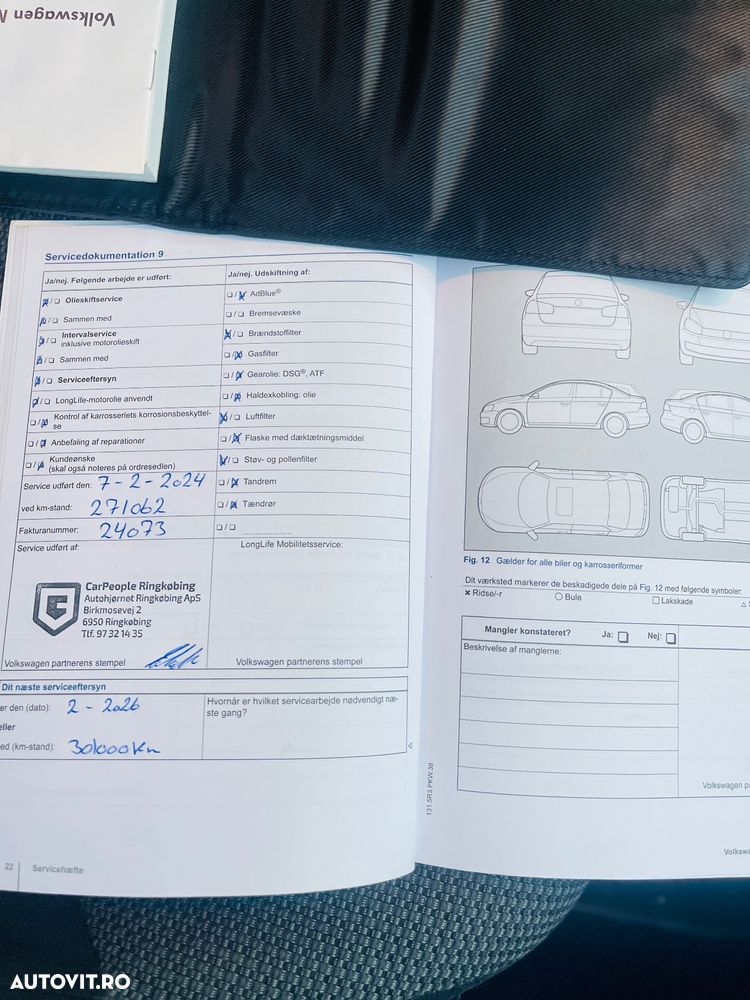 Volkswagen
Servicedokumentation 9
Ja/nej. Følgende arbejde er udført:
Olieskiftservice
Sammen med
Intervalservice
inklusive motorolieskift
Sammen med
Serviceeftersyn
LongLife-motorolie anvendt
Kontrol af karrosseriets korrosionsbeskyttel-
se
Anbefaling af reparationer
Kundeønske
(skal også noteres på ordresedlen)
Service udført den: 7-2-2024
ved km-stand: 271062
Fakturanummer: 24073
Service udført af:
CarPeople Ringkøbing
Autohjørnet Ringkøbing ApS
Birkmosevej 2
6950 Ringkøbing
Tlf. 97 32 14 35
Volkswagen partnerens stempel
Ja/nej. Udskiftning af:
AdBlue®
Bremsevæske
Brændstoffilter
Gasfilter
Gearolie: DSG®, ATF
Haldexkobling: olie
Luftfilter
Flaske med dæktætningsmiddel
Støv- og pollenfilter
Tandrem
Tændrør
LongLife Mobilitetsservice:
Volkswagen partnerens stempel
Dit næste serviceeftersyn
er den (dato): 2-2026
eller
ed (km-stand): 301000 Km
Hvornår er hvilket servicearbejde nødvendigt næ-
ste gang?
22 Servicehæfte
Fig. 12 Gælder for alle biler og karrosseriformer
Dit værksted markerer de beskadigede dele på Fig. 12 med følgende symboler.
Ridse/-r
Bule
Lakskade
Mangler konstateret? Ja: Nej:
Beskrivelse af manglerne:
Volkswagen
131.5R3.PKW.38
AUTOVIT.RO